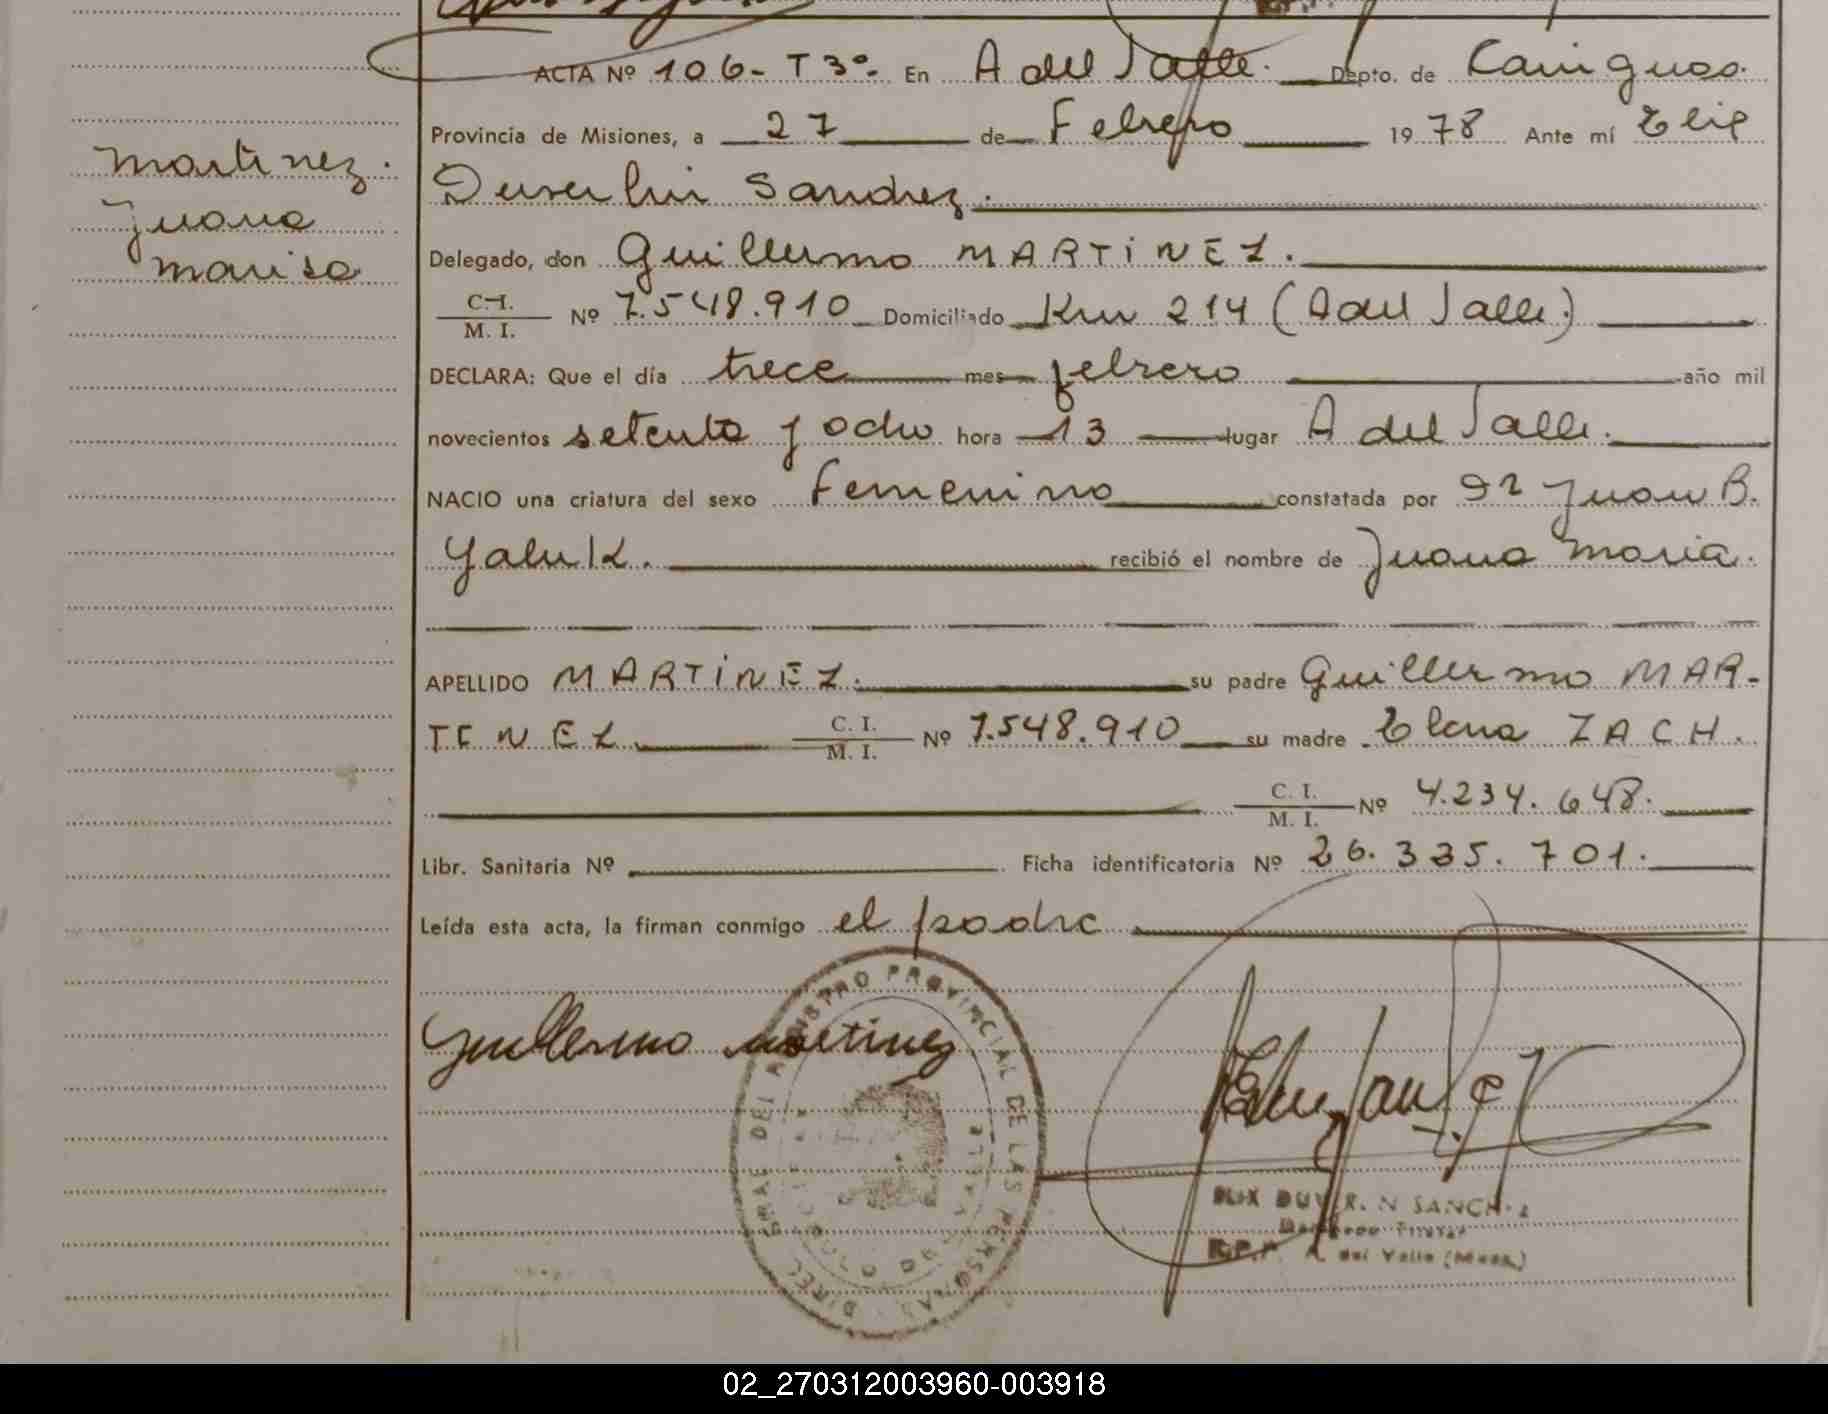 ACTA Nº 106- T3º- En A del Valle. Depto. de Cainguas.
Provincia de Misiones, a 27 de Febrero 1978 Ante mí Elix
Duverlin Sanchez.
Martinez.
Juana
Maria
Delegado, don Guillermo MARTINEZ.
C.I.
M. I. Nº 7.548.910 Domiciliado Km 214 (A del Valle.)
DECLARA: Que el día trece mes febrero año mil
novecientos setenta y ocho hora 13 lugar A del Valle.
NACIO una criatura del sexo Femenino constatada por Dr Juan B.
Yaluk. recibió el nombre de Juana Maria.
APELLIDO MARTINEZ. su padre Guillermo MAR-
TINEZ C. I.
M. I. Nº 7.548.910 su madre Elena ZACH.
C. I.
M. I. Nº 4.234.648.
Libr. Sanitaria Nº Ficha identificatoria Nº 26.335.701.
Leída esta acta, la firman conmigo el padre
Guillermo Martinez
REGISTRO PROVINCIAL DE LAS PERSONAS
SANCHEZ
A. del Valle
02_270312003960-003918